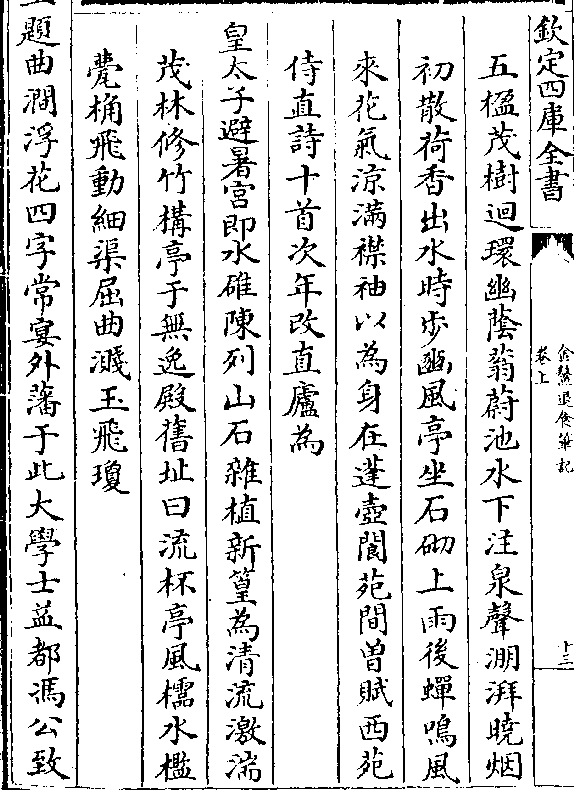 欽定四庫全書
金鰲退食筆記
卷上
十三
五楹茂樹迴環幽蔭蓊蔚池水下注泉聲淜湃曉烟
初散荷香出水時步豳風亭坐石砌上雨後蟬鳴風
來花氣涼滿襟袖以為身在蓬壺閬苑間曽賦西苑
侍直詩十首次年改直廬為
皇太子避暑宮即水碓陳列山石雜植新篁為清流激湍
茂林修竹構亭于無逸殿舊址曰流杯亭風檽水檻
甍桷飛動細渠屈曲濺玉飛瓊
題曲澗浮花四字常宴外藩于此大學士益都馮公致